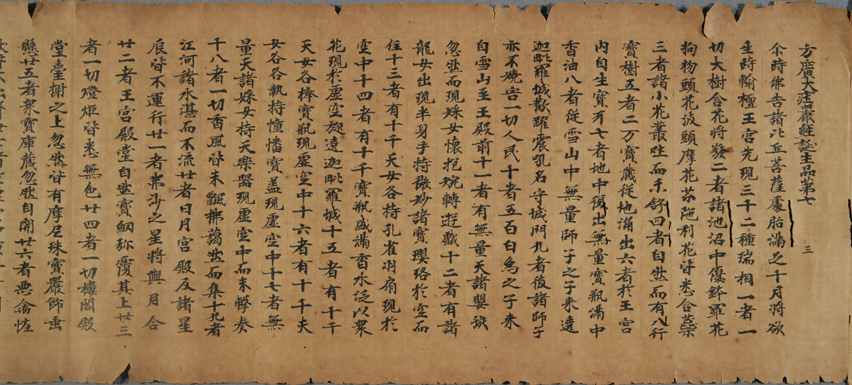 方廣大莊嚴經誕生品第七 三
尒時佛告諸比丘菩薩處胎滿足十月將欲
生時輸檀王宮先現三十二種瑞相一者一
切大樹含花將發二者諸池沼中優鉢羅花
拘物頭花波頭摩花芬陁利花皆悉含蘂
三者諸小花叢吐而未舒四者自然而有八行
寶樹五者二万寶藏從地涌出六者於王宮
內自生寶牙七者地中復出無量寶瓶滿中
香油八者從雪山中無量師子之子來遶
迦毗羅城歡躍震吼各守城門九者彼諸師子
亦不嬈害一切人民十者五百白象之子來
自雪山至王殿前十一者有無量天諸嬰孩
忽然而現婇女懷抱婉轉遊戲十二者有諸
龍女出現半身手持微妙諸寶瓔珞於空而
住十三者有十千天女各持孔雀羽扇現於
空中十四者有十千寶瓶盛滿香水泛以眾
花現於虛空旋遶迦毗羅城十五者有十千
天女各捧寶瓶現虛空中十六者有十千天
女各各執持幢幡寶盖現虛空中十七者無
量天諸婇女持天樂器現虛空中而未擊奏
十八者一切香風皆來飄拂藹然而集十九者
江河諸水湛而不流廿者日月宮殿及諸星
辰皆不運行廿一者弗沙之星將與月合
廿二者王宮殿堂自然寶網弥覆其上廿三
者一切燈炬皆悉無色廿四者一切樓閣殿
堂臺榭之上忽然皆有摩尼珠寶嚴飾垂
懸廿五者眾寶庫藏忽然自開廿六者惡禽怪